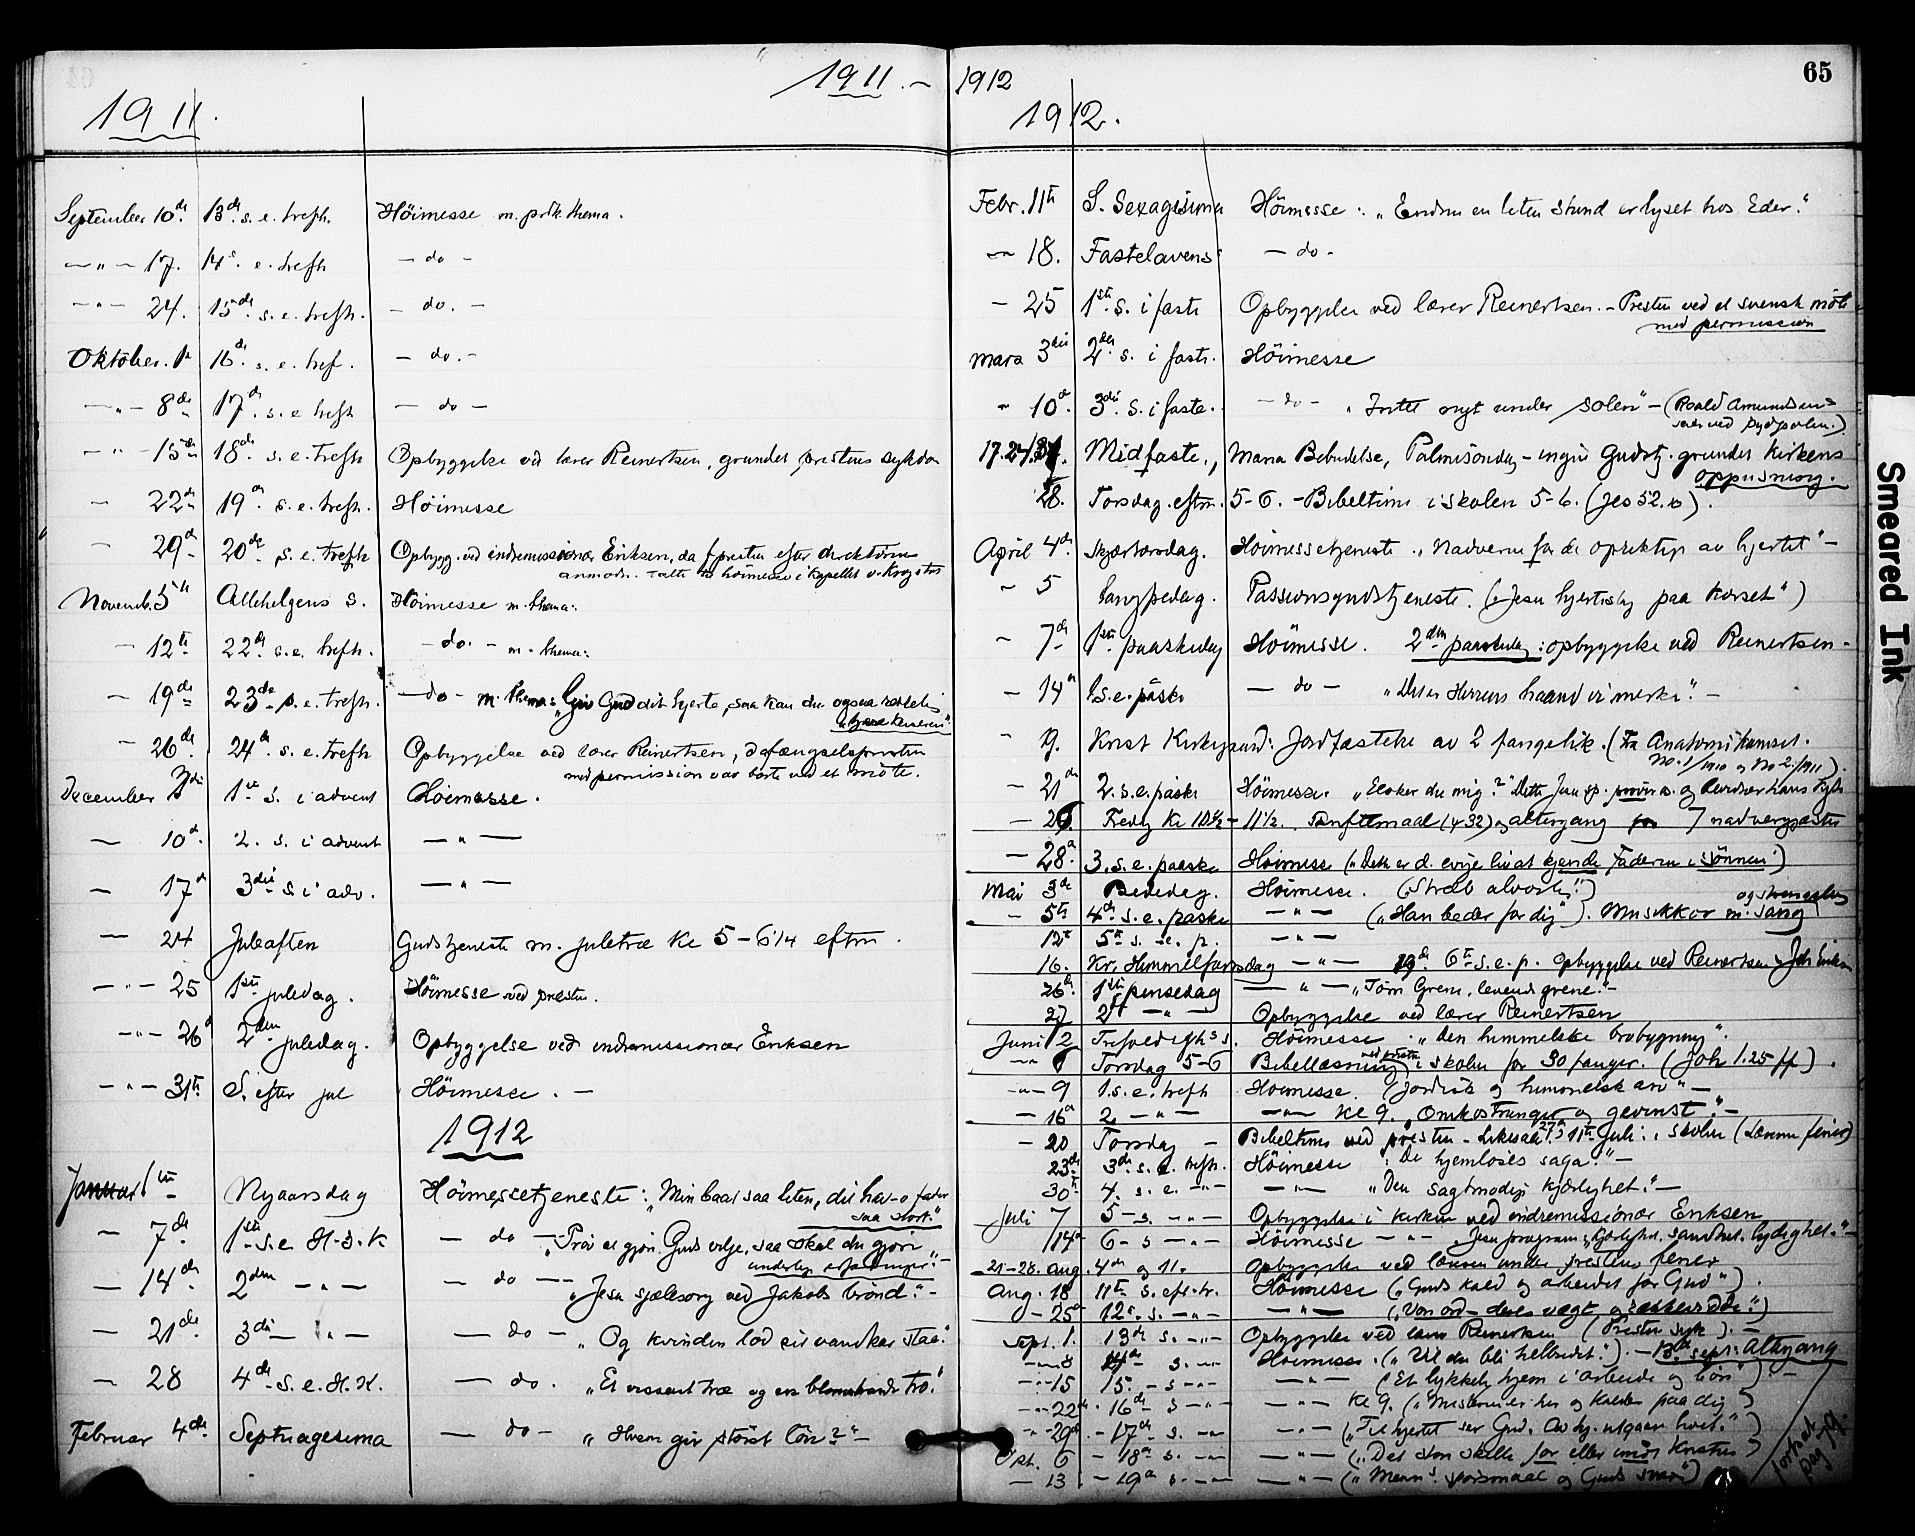 1911. – 1912
65
1911.
September 10de 13de s. e. trefh. Höimesse m. thema.
– " – 17. 14s. e. trefh – do –
– " – 24. 15de s. e. trefh. – do. –
Oktober. 1 16de s. e. tref. – do. –
– " – 8de 17de s. e. trefh – do –
– " – 15de 18de s. e. trefh Opbyggelse ved lærer Reinertsen, grundet prestens sykdom
– 22de 19de s. e. trefh. Höimesse
– 29de 20de s. e. trefh Opbygg. ved indremissionær Eriksen, da presten efter direktörens
anmodn. höimesse i kapellet
Novemb. 5te Allehelgens s. Höimesse m. thema:
– 12te 22de s. e. trefh. – do. – m. thema:
– 19de 23de s. e. trefh. – do – m. thema: "Giv Gud dit hjerte, saa kan du ogsaa
– 26de 24de s. e. trefh Opbyggelse ved lærer Reinertsen, da fængselspresten
med permission var borte ved et möte.
December 3die 1ste s. i advent Höimesse.
– 10de 2. s. i advent – " –
– 17de 3die s. i adv. – " –
– 24 Juleaften Gudstjeneste m. juletræ kl 5 – 6 1/4 eftm.
– " – 25 1ste juledag. Höimesse ved presten.
– " – 26de 2den juledag. Opbyggelse ved indremissionær Eriksen
– " – 31te S. efter jul Höimesse. –
1912
Januar 1ste Nyaarsdag Höimessetjeneste: "Min baad saa liten, dit hav o fader
saa stort."
– 7de 1ste s. e. H. 3. K – do – "Prøv at gjöre Guds vilje, saa skal du gjöre
underlige erfaringer." –
– 14de 2den – " – – do – "Jesu sjælesorg ved Jakobs brönd." –
– 21de 3die – " – – do – "Og kvinden lod sit vandkar staa."
– 28 4de s. e. H. K. – do. "Et vissent træ og en blomstrende tro."
Februar 4de Septuagesima – do – "Hvem gir störst lön?" –
1912.
Febr. 11te S. Sexagesima Höimesse: "Endnu en liten stund er lyset hos Eder."
– 18. Fastelavens – do –
– 25 1ste s. i faste Opbyggelse ved lærer Reinertsen. – Presten ved et svensk möte
med permission
Mars 3die 2den s. i faste. Höimesse
– 10de 3die s. i faste. – do – "Intet nyt under solen" – (Roald Amundsen
ved Sydpolen.)
17. 24/31. Midfaste, Maria Bebudelse, Palmesöndag – ingen Gudstj. grundet kirkens
oppusning.
28. Torsdag. eftm. 5-6. – Bibeltime i skolen 5-6. (Jes 52. ).
April 4de Skjærtorsdag. Höimessetjeneste. "Nadveren for de opriktige av hjertet" –
– 5 Langfredag. Passionsgudstjeneste. ("Jesu hjerteslag paa korset")
– 7de 1ste paaskedag Höimesse. 2den paaskedag: opbyggelse ved Reinertsen –
– 14de 1 s. e. påske – do – "Det er Herrens haand vi merke." –
– 19. Krist Kirkegaard: Jordfæstelse av 2 fangelik. (Fra Anatomikamret.
No. 1/1910 og No 2/1911).
– 21de 2. s. e. påske Höimesse. "Elsker du mig?"
– 26. Fredag kl 10 1/2 – 11 1/2. Skriftemaal (432) og altergang 7 nadvergjæster
– 28de 3. s. e. paaske Höimesse ("Dette er d. evige liv at kjende Faderen i Sönnen")
Mai 3de Bededag. Höimesse. ("Stræb alvorlig!")
– 5te 4de s. e. paaske – " – ("Han beder for dig"). Musikkor m. sang
12te 5te s. e. p. – " –
16. Kr. Himmelfartsdag – " – 19de 6te s. e. p. Opbyggelse ved Reinertsen
26de 1ste pinsedag – " – "Tørre Grene, levende grene." –
27 2den – " – Opbyggelse ved lærer Reinertsen
Juni 2 Trefoldighs s. Höimesse: "Den himmelske brobygning".
– " – 6 Torsdag 5-6 Bibellæsning ved presten i skolen for 30 fanger. (Joh 1.25 ff).
– " – 9 1. s. e. trefh Höimesse. (Jordisk og himmelsk arv" –
– 16de 2. – " – – " – kl 9. "Omkostninger og gevinst." –
– 20 Torsdag – Bibeltime ved presten 27de 11te Juli: i skolen
23de 3de s. e. trefh. Höimesse "De hjemlöses saga." –
30te 4. s. e. – " – – " – "Den sagtmodige kjærlighet." –
Juli 7 5 – s. – " – Opbyggelse i kirken ved indremissionær Eriksen
14de 6 – s – " – Höimesse – " – "Jesu program: Kjærlighet, sandhet, lydighet." –
21–28. Aug. 4de og 11. Opbyggelse ved læreren under prestens ferier
Aug. 18 11te s. eft. tr. Höimesse ("Guds kald og arbeidet for Gud").
– 25de 12te s. – " – – " – ("Vore ord – deres vægt og rækkevidde.")
Sept. 1. 13de s. – " – Opbyggelse ved lærer Reinertsen (Presten syk). –
– " – 8 14de s. – " – Höimesse. ("Vil du bli helbredet"). – 13de sept: Altergang
– " – 15 15. – s – " – – " – ("Et lykkelig hjem i arbeide og bön") –
– " – 22de 16de s – " – – " – kl 9. ("Mesteren er her og kalder paa dig")
– " – 29de 17de s. – " – – " – ("Til hjertet ser Gud. Av hj. utgaar livet.")
Okt. 6 – 18de s. – " – – " – ("Det store skille for eller imot Kristus")
– 13 – 19de s – " – – " – ("Menn. spörsmaal og Guds svar")
fortsat
pag 79.
Smeared Ink